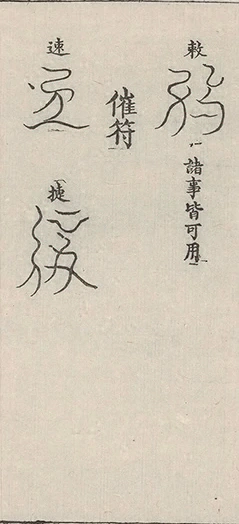 敕
諸事皆可用
催符
速
捷